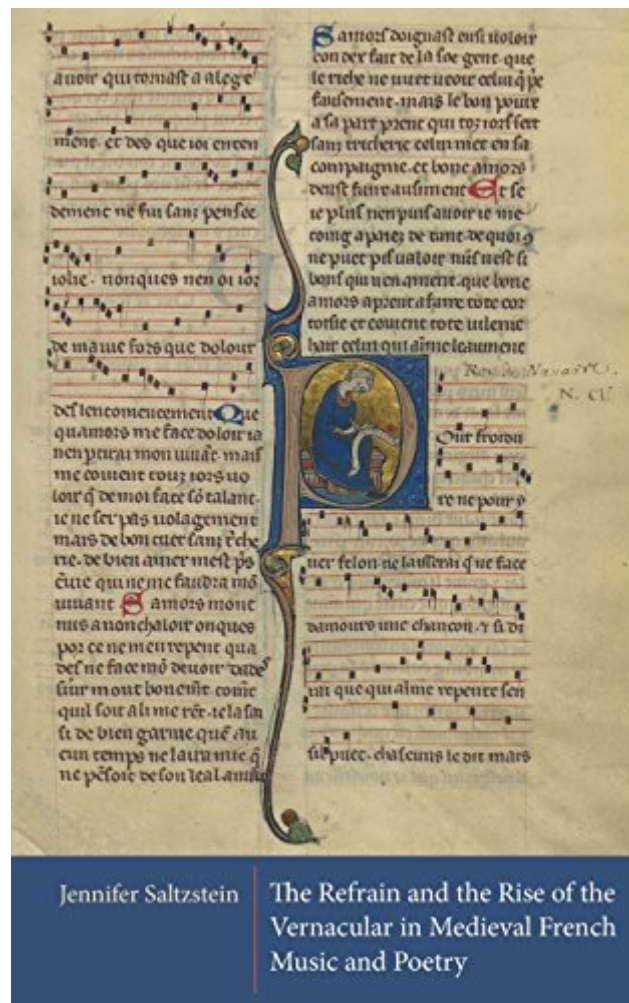 auoir qui tornast a alege
ment. et des que ioi enten
dement ne fui sanz pensee
iolie. nonques nen oi ior
de fors que dolour
des lencomencement Que
quamors me face doloir ia
nen mon uiuāt. mais
me couient touz iors uo
loir q̄ de moi face sō talant.
ie ne ser pas uolagement
mais de bon cuer sanz
rie. de bien amer mest p̄s
ēuie qui ne me faudra mō
uiuant Samors mont
mis a nonchaloir onques
por ce ne men repent qua
des ne face mō deuoir
mout
quil soit a li me ie la sai
si de bien garnie quē au
cun temps ne laira mie q̄
ne pēsoit de son leal
Samors doignast ensi uoloir
con dex fait de la soe gent. que
le riche ne ueut ueoir celui q̄
fausement. mais le bon poure
a sa part prent qui toz iors sert
sanz tricherie celui met en sa
compaignie. et bone amors
deust faire ausiment Et se
ie plus nen puis auoir ie me
toing a paiez de tant. de quoi
ne puet pis ualoir nus nest si
bons qui nen ament. que bone
amors aprent a faire tote cor
toisie et couient tote uilenie
hair celui qui aime leaument
Roi de Navarre.
N. CI.
Pour froidu
re ne pour
uer felon ne laisserai q̄ ne face
damours une chancon. et si di
rai que qui aime repente sen
sil puet. chascuns le dit mais
Jennifer Saltzstein
The Refrain and the Rise of the
Vernacular in Medieval French
Music and Poetry